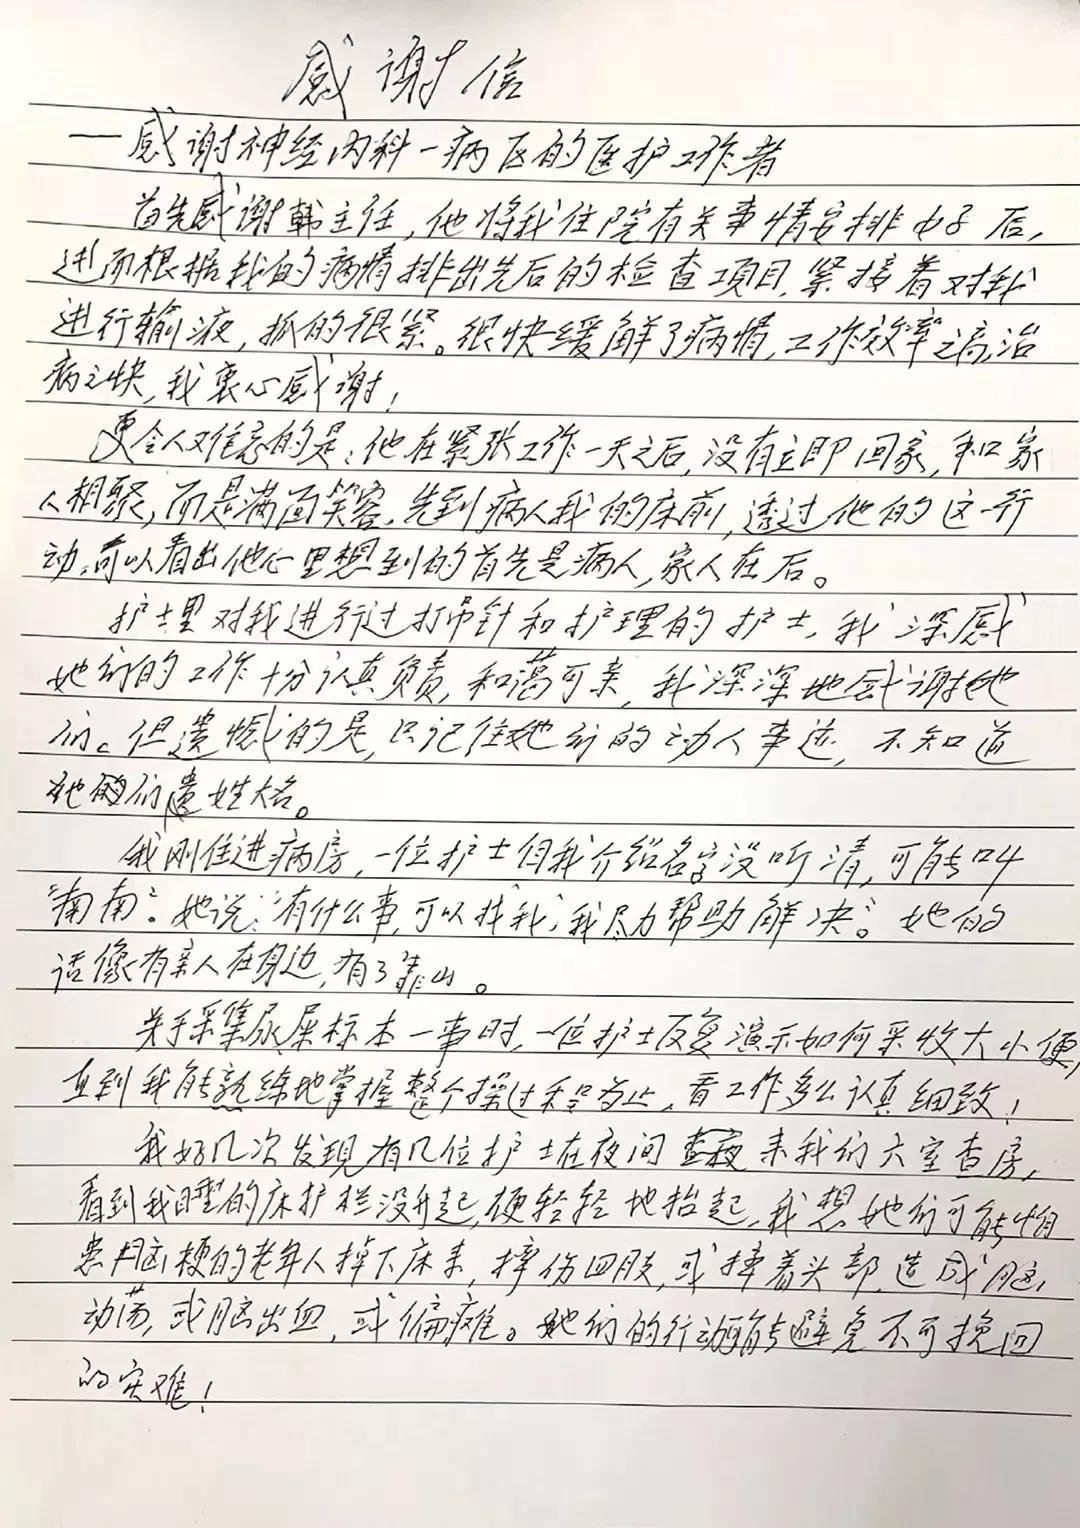 感谢信
一感谢神经内科一病区的医护工作者
首先感谢韩主任，他将我住院有关事情安排好后，
进而根据我的病情排出先后的检查项目，紧接着对我
进行输液，抓的很紧。很快缓解了病情，工作效率之高，治
病之快，我衷心感谢！
更令人难忘的是：他在紧张工作一天之后，没有立即回家，和家
人相聚，而是满面笑容，先到病人我的床前，透过他的这一行
动，可以看出他心里想到的首先是病人，家人在后。
护士里对我进行过打吊针和护理的护士，我深感
她们的工作十分认真负责，和蔼可亲，我深深地感谢她
们。但遗憾的是，只记住她们的动人事迹，不知道
她们遗姓大名。
我刚住进病房，一位护士自我介绍名字没听清，可能叫
“南南”。她说：“有什么事，可以找我，我尽力帮助解决”。她的
话像有亲人在身边，有了靠山。
关于采集尿、屎标本一事时，一位护士反复演示如何采收大小便，
直到我能熟练地掌握整个操过程为止，看工作多么认真细致！
我好几次发现有几位护士在夜间来我们六室查房，
看到我睡的床护栏没升起，便轻轻地抬起，我想她们可能怕
患脑梗的老年人掉下床来，摔伤四肢，或摔着头部，造成脑
动荡，或脑出血，或偏瘫。她们的行动能避免不可挽回
的灾难！